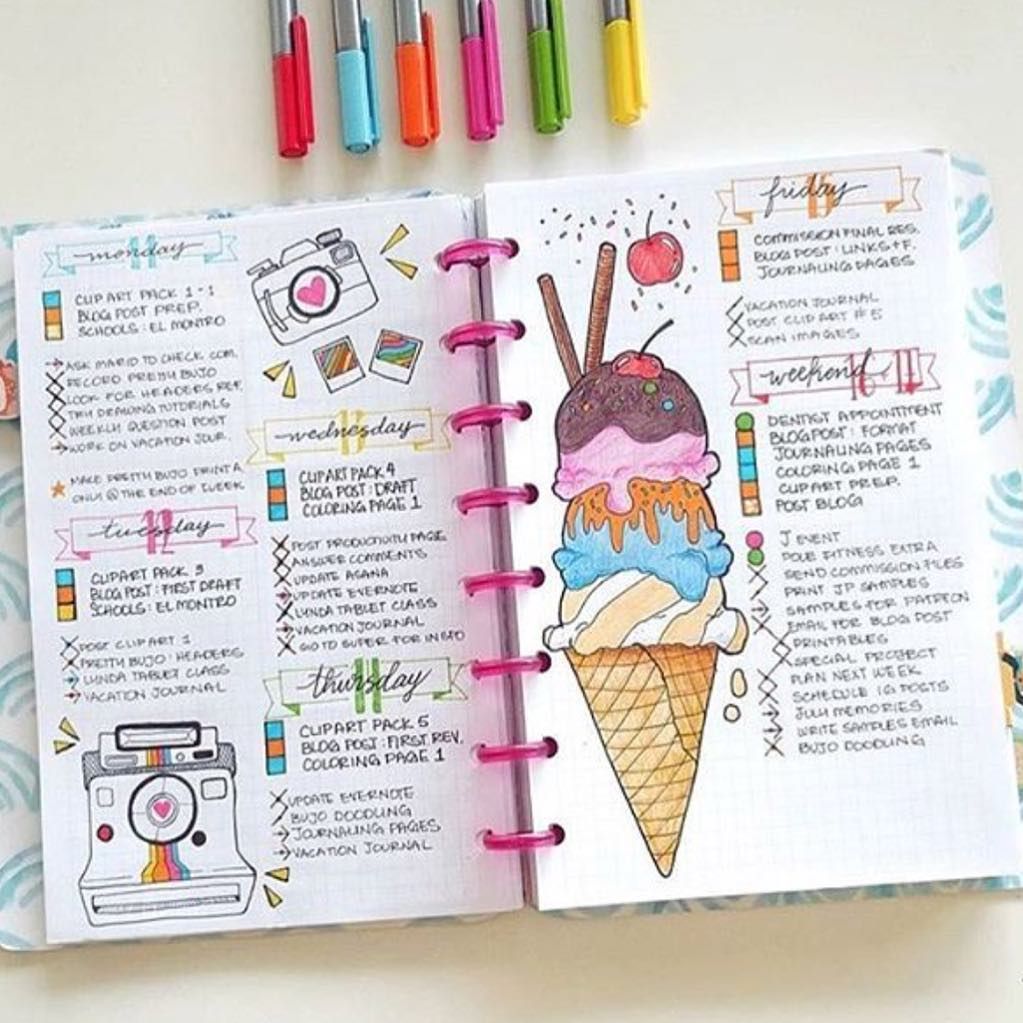 monday
11
CLIP ART PACK 1-1
BLOG POST PREP.
SCHOOLS: EL MONTRO
ASK MARIO TO CHECK COM.
RECORD PRETTY BUJO
LOOK FOR HEADERS REF.
TRY DRAWING TUTORIALS
WEEKLY QUESTION POST
WORK ON VACATION JOUR.
MAKE PRETTY BUJO PRINTA
ONLY @ THE END OF WEEK
tuesday
12
CLIPART PACK 3
BLOG POST: FIRST DRAFT
SCHOOLS: EL MONTRO
POST CLIPART 1
PRETTY BUJO: HEADERS
LYNDA TABLET CLASS
VACATION JOURNAL
wednesday
13
CLIPART PACK 4
BLOG POST: DRAFT
COLORING PAGE 1
POST PRODUCTIVITY PAGE
ANSWER COMMENTS
UPDATE ASANA
UPDATE EVERNOTE
LYNDA TABLET CLASS
VACATION JOURNAL
GO TO SUPER FOR INFO
thursday
CLIPART PACK 5
BLOG POST: FIRST REV.
COLORING PAGE 1
UPDATE EVERNOTE
BUJO DOODLING
JOURNALING PAGES
VACATION JOURNAL
friday
COMMISSION FINAL RES.
BLOG POST: LINKS + F.
JOURNALING PAGES
VACATION JOURNAL
POST CLIPART #5
SCAN IMAGES
weekend
DENTIST APPOINTMENT
BLOG POST: FORMAT
JOURNALING PAGES
COLORING PAGE 1
CLIPART PREP.
POST BLOG
J EVENT
POLE FITNESS EXTRA
SEND COMMISSION FILES
PRINT JP SAMPLES
SAMPLES FOR PATREON
EMAIL FOR BLOG POST
PRINTABLES
SPECIAL PROJECT
PLAN NEXT WEEK
SCHEDULE IG POSTS
JULY MEMORIES
WRITE SAMPLES EMAIL
BUJO DOODLING